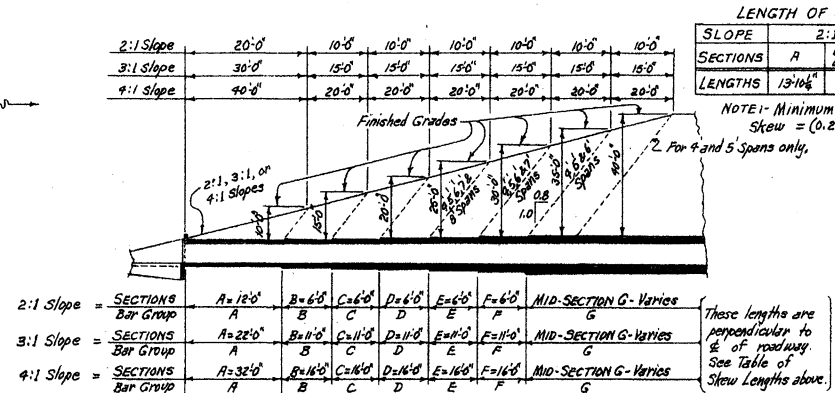 LENGTH OF
SLOPE 2:1
SECTIONS A
LENGTHS
NOTE:- Minimum
Skew = (0.2
For 4 and 5' Spans only.
2:1 Slope 20'-0" 10'-0" 10'-0" 10'-0" 10'-0" 10'-0" 10'-0"
3:1 Slope 30'-0" 15'-0" 15'-0" 15'-0" 15'-0" 15'-0" 15'-0"
4:1 Slope 40'-0" 20'-0" 20'-0" 20'-0" 20'-0" 20'-0" 20'-0"
Finished Grades
2:1, 3:1, or
4:1 Slopes
10'-0"
15'-0"
20'-0"
25'-0"
Spans
30'-0"
Spans
35'-0"
Spans
40'-0"
0.8
1.0
2:1 Slope = SECTIONS A=12'-0" B=6'-0" C=6'-0" D=6'-0" E=6'-0" F=6'-0" MID-SECTION G-Varies
Bar Group A B C D E F G
3:1 Slope = SECTIONS A=22'-0" B=11'-0" C=11'-0" D=11'-0" E=11'-0" F=11'-0" MID-SECTION G-Varies
Bar Group A B C D E F G
4:1 Slope = SECTIONS A=32'-0" B=16'-0" C=16'-0" D=16'-0" E=16'-0" F=16'-0" MID-SECTION G-Varies
Bar Group A B C D E F G
These lengths are
perpendicular to
℄ of roadway.
See Table of
Skew Lengths above.